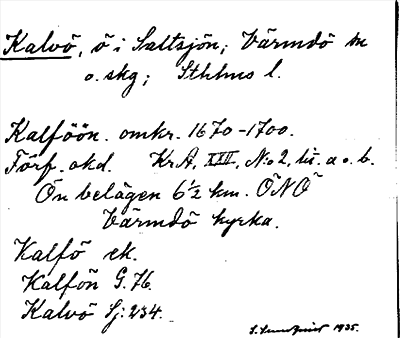 Kalvö, ö i Saltsjön; Värmdö sn
o. skg; Sthlms l.
Kalföön. omkr. 1670-1700.
Förf. okd. KrA, XXII, No 2, lit. a o. b.
Ön belägen 6½ km. ÖNÖ
Värmdö kyrka.
Kalfö ek.
Kalfön G. 76.
Kalvö Sj: 234.
1935.